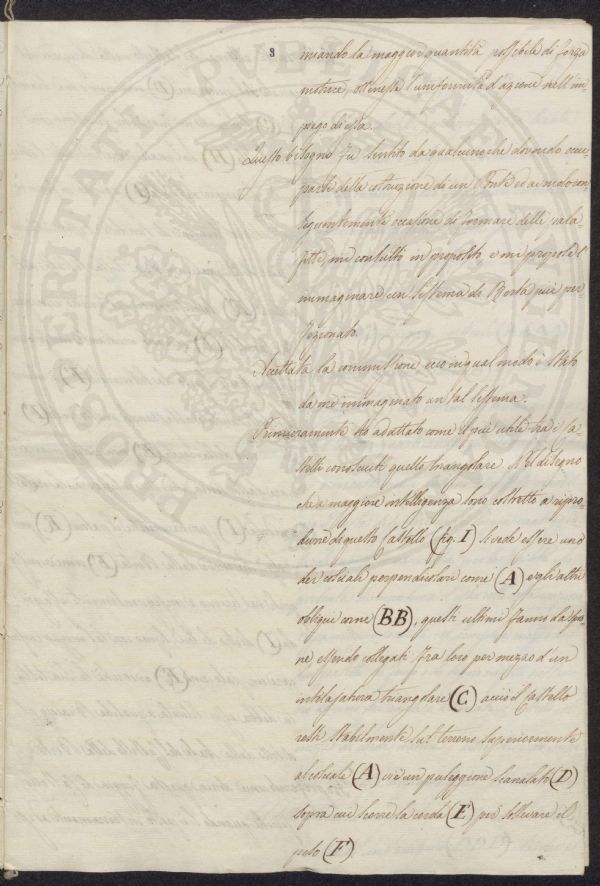 3
miando la maggior quantità possibile di forza
motrice ottenesse l'uniformità d'azione nell'im-
piego di essa.
Questo bisogno fu sentito da qualcuno che dovendo occu-
parsi della costruzione di un Ponte ed avendo con
seguentemente occasione di formare delle pala-
fitte, mi consultò in proposito e mi propose l'
immaginare un sistema di Berta più per-
fezionato.
Accettata la commissione ecco in qual modo è stato
da me immaginato un tal sistema.
Primieramente ho adattato come il più utile tra i Ca-
stelli conosciuti quello triangolare. Nel disegno
che a maggiore intelligenza sono costretto a ripro-
durre di questo Castello (fig. I) si vede essere uno
dei cosciali perpendicolare come (A) e gli altri
obliqui come (BB), questi ultimi fanno da spro-
ne essendo collegati fra loro per mezzo d'un
intelajatura triangolare (C) acciò il Castello
resti stabilmente sul terreno superiormente
al cosciale (A) vi è un puleggione scanalato (D)
sopra cui scorre la corda (E) per sollevare il
peso (F).